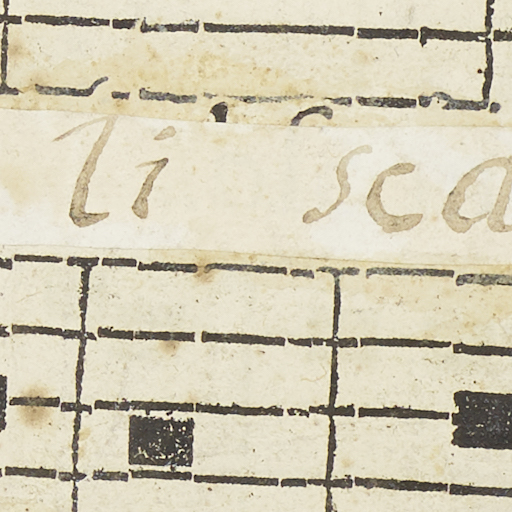 li sca